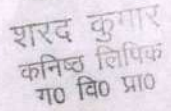 शरद कुमार
कनिष्ठ लिपिक
ग0 वि0 प्रा0